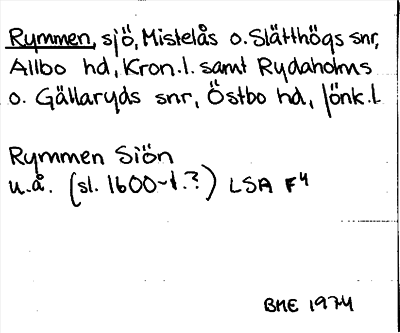 Rymmen, sjö, Mistelås o. Slätthögs snr,
Allbo hd, Kron.l. samt Rydaholms
o. Gällaryds snr, Östbo hd, Jönk.l
Rymmen Siön
u.å. (sl. 1600-t.?) LSA F4
BHE 1974